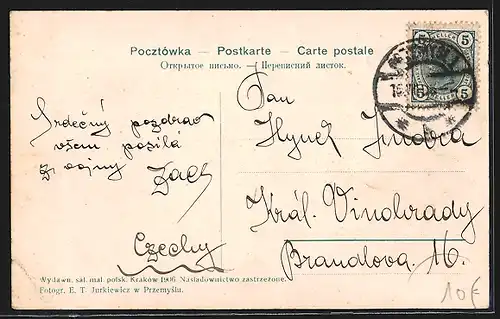 Pocztówka — Postkarte — Carte postale
Открытое письмо. — Переписний листок.
5 5
HELLER
Pan
Hynek Jindra
Král. Vinohrady
Brandlova 16.
Srdečný pozdrav
všem posílá
z vojny
Czechy
Wydawn. sal. mal. polsk. Kraków 1906. Naśladownictwo zastrzeżone.
Fotogr. E. T. Jurkiewicz w Przemyślu.
10€